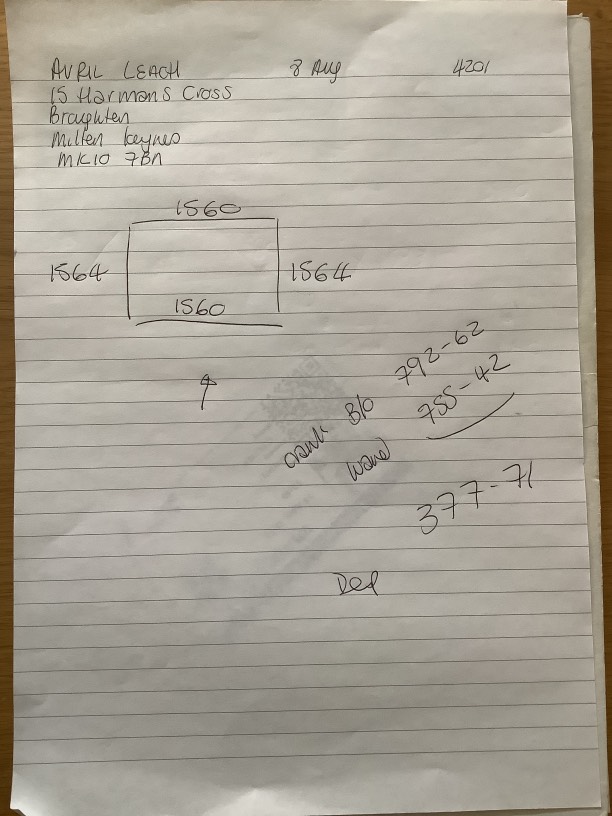 AVRIL LEACH 8 Aug 4201
15 Harmans Cross
Broughten
Milten keynes
MK10 7BN
1560
1564 1564
1560
crank B/o 792-62
wand 755-42
377-71
Dep